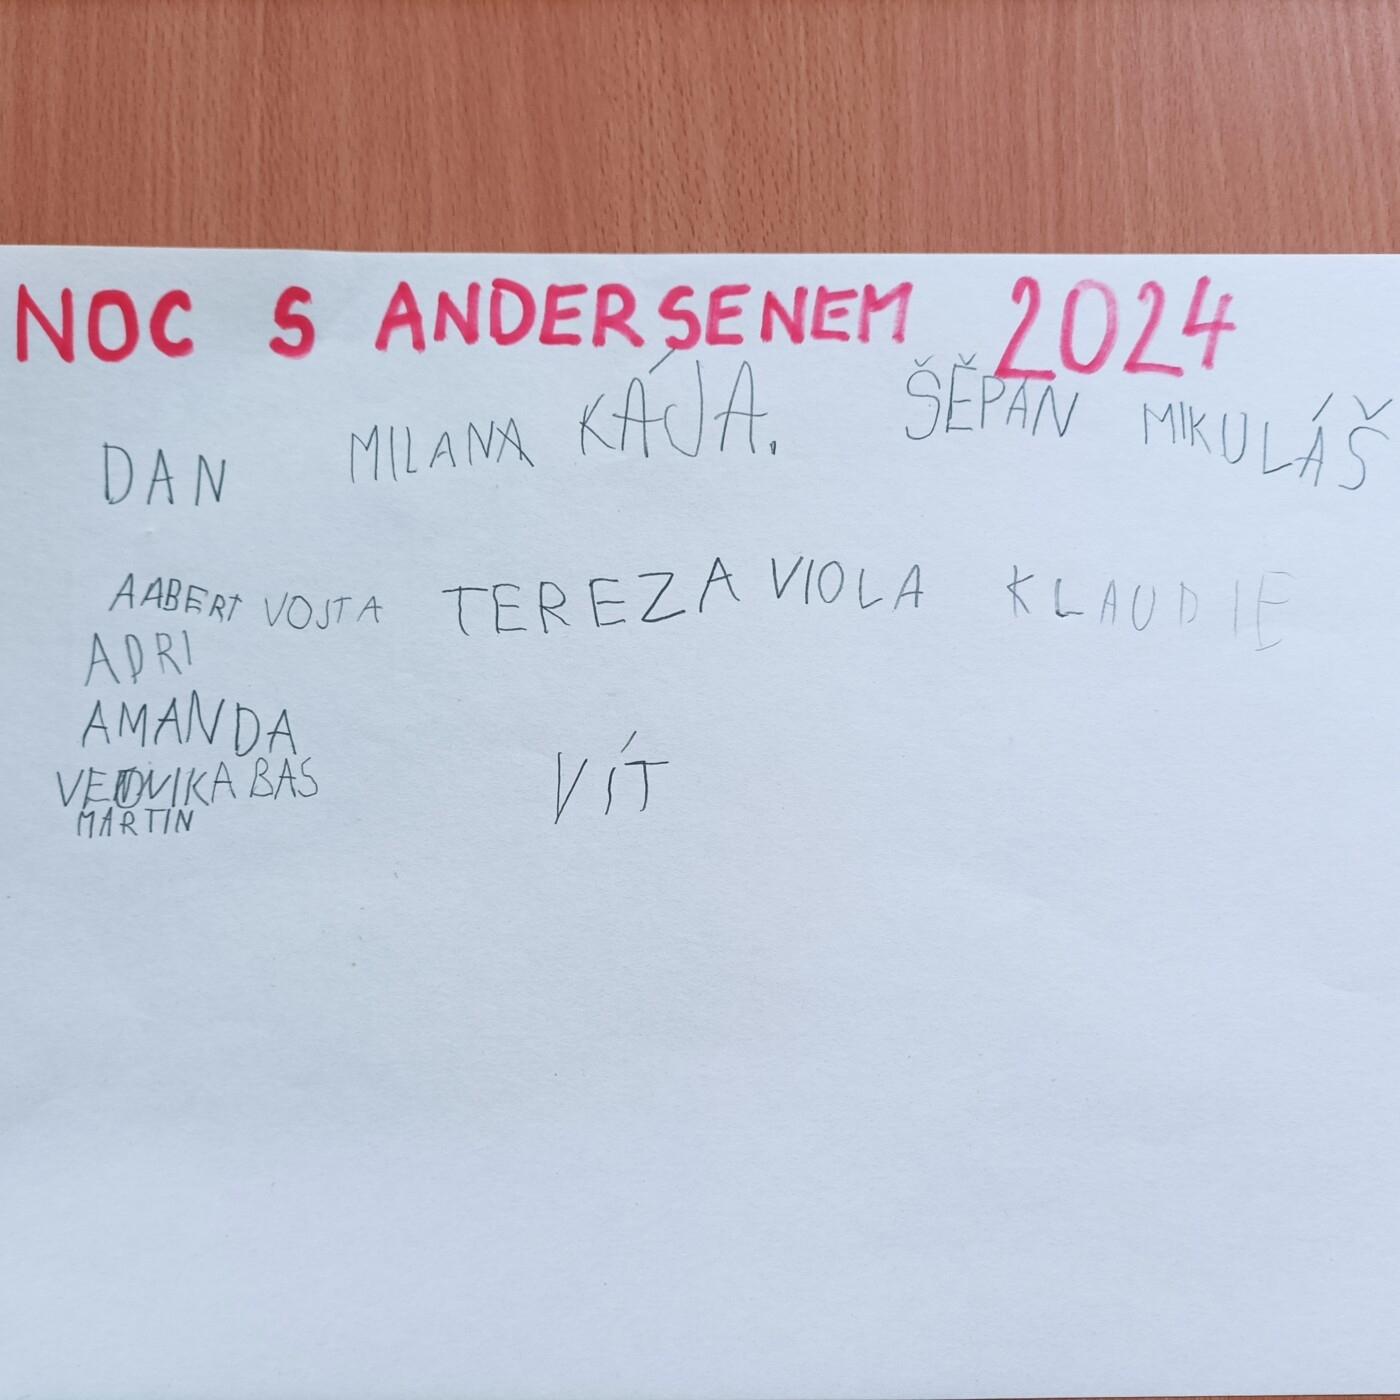 NOC S ANDERSENEM 2024
DAN MILANA KÁJA. ŠĚPÁN MIKULÁŠ
AABERT VOJTA TEREZA VIOLA KLAUDIE
ADRI
AMANDA
BAS VÍT
MARTIN